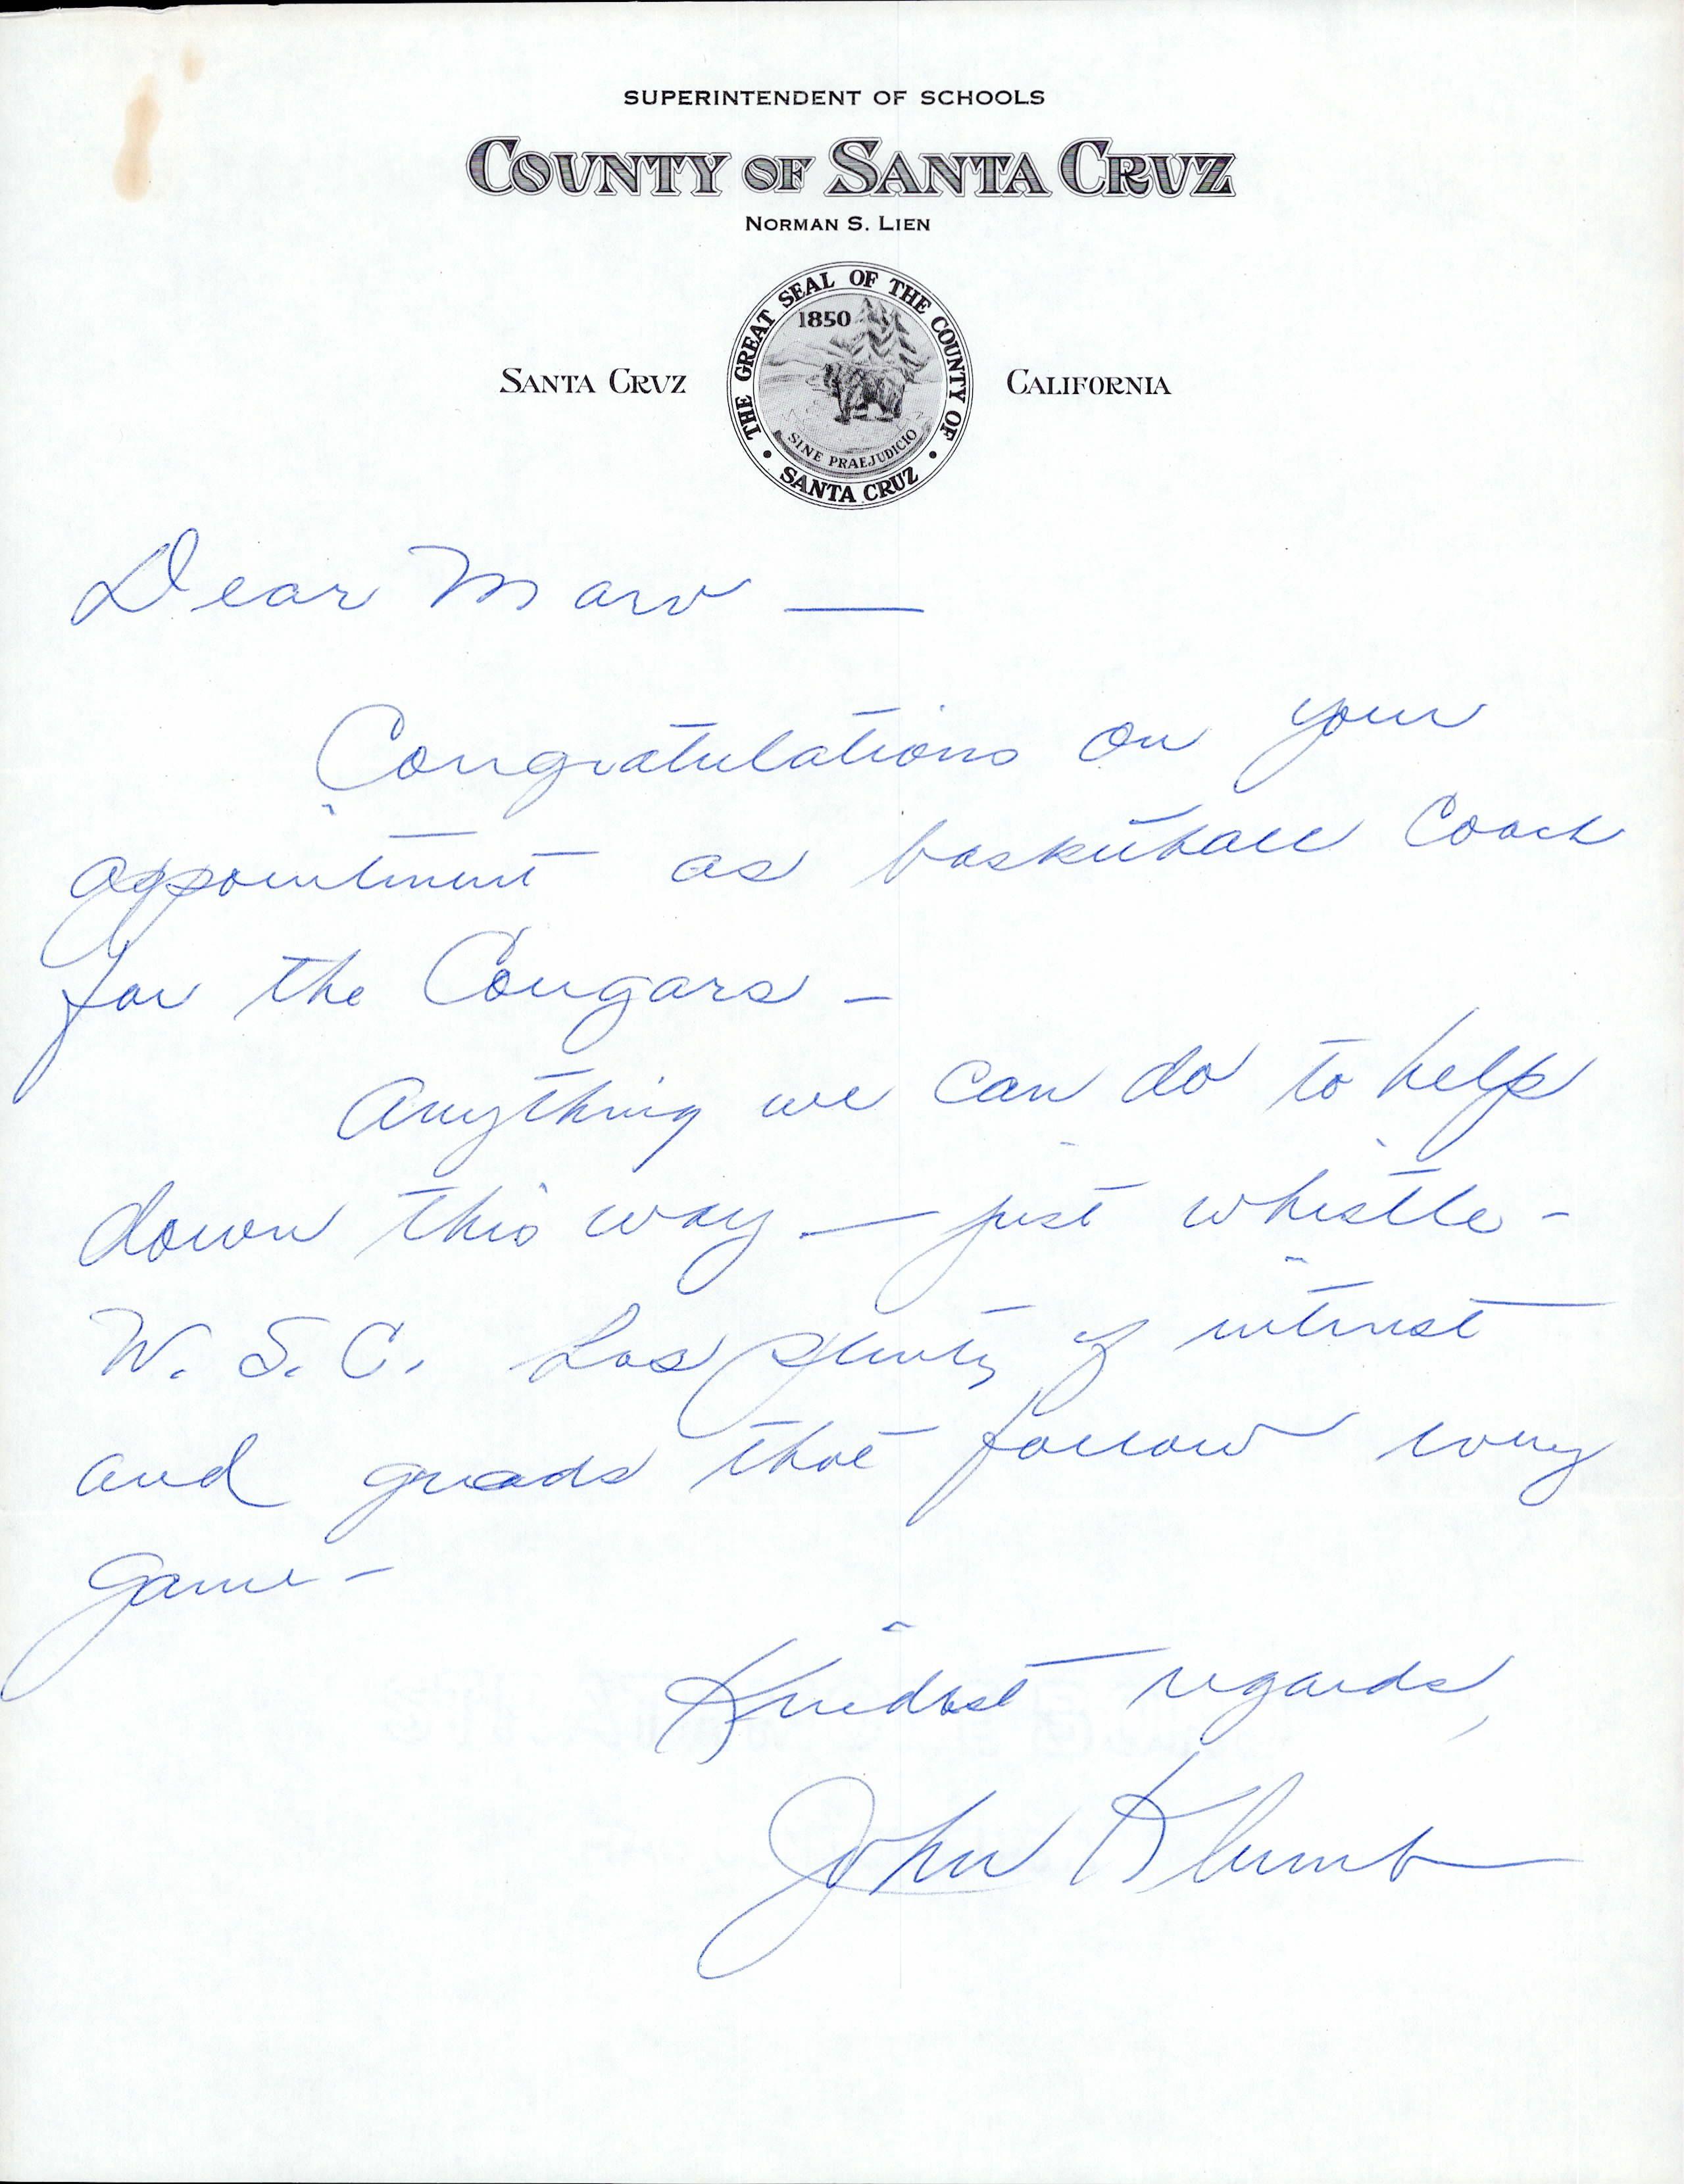 SUPERINTENDENT OF SCHOOLS
COUNTY OF SANTA CRUZ
NORMAN S. LIEN
THE GREAT SEAL OF THE COUNTY OF SANTA CRUZ
1850
SINE PRAEJUDICIO
SANTA CRUZ
CALIFORNIA
Dear Marv —
Congratulations on your
appointment as basketball coach
for the Cougars -
Anything we can do to help
down this way — just whistle -
W. S. C. has plenty of interest
and grads that follow every
game -
Kindest regards,
John Klumb